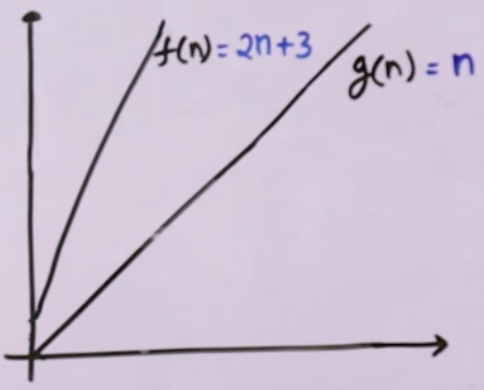 f(n) = 2n+3
g(n) = n